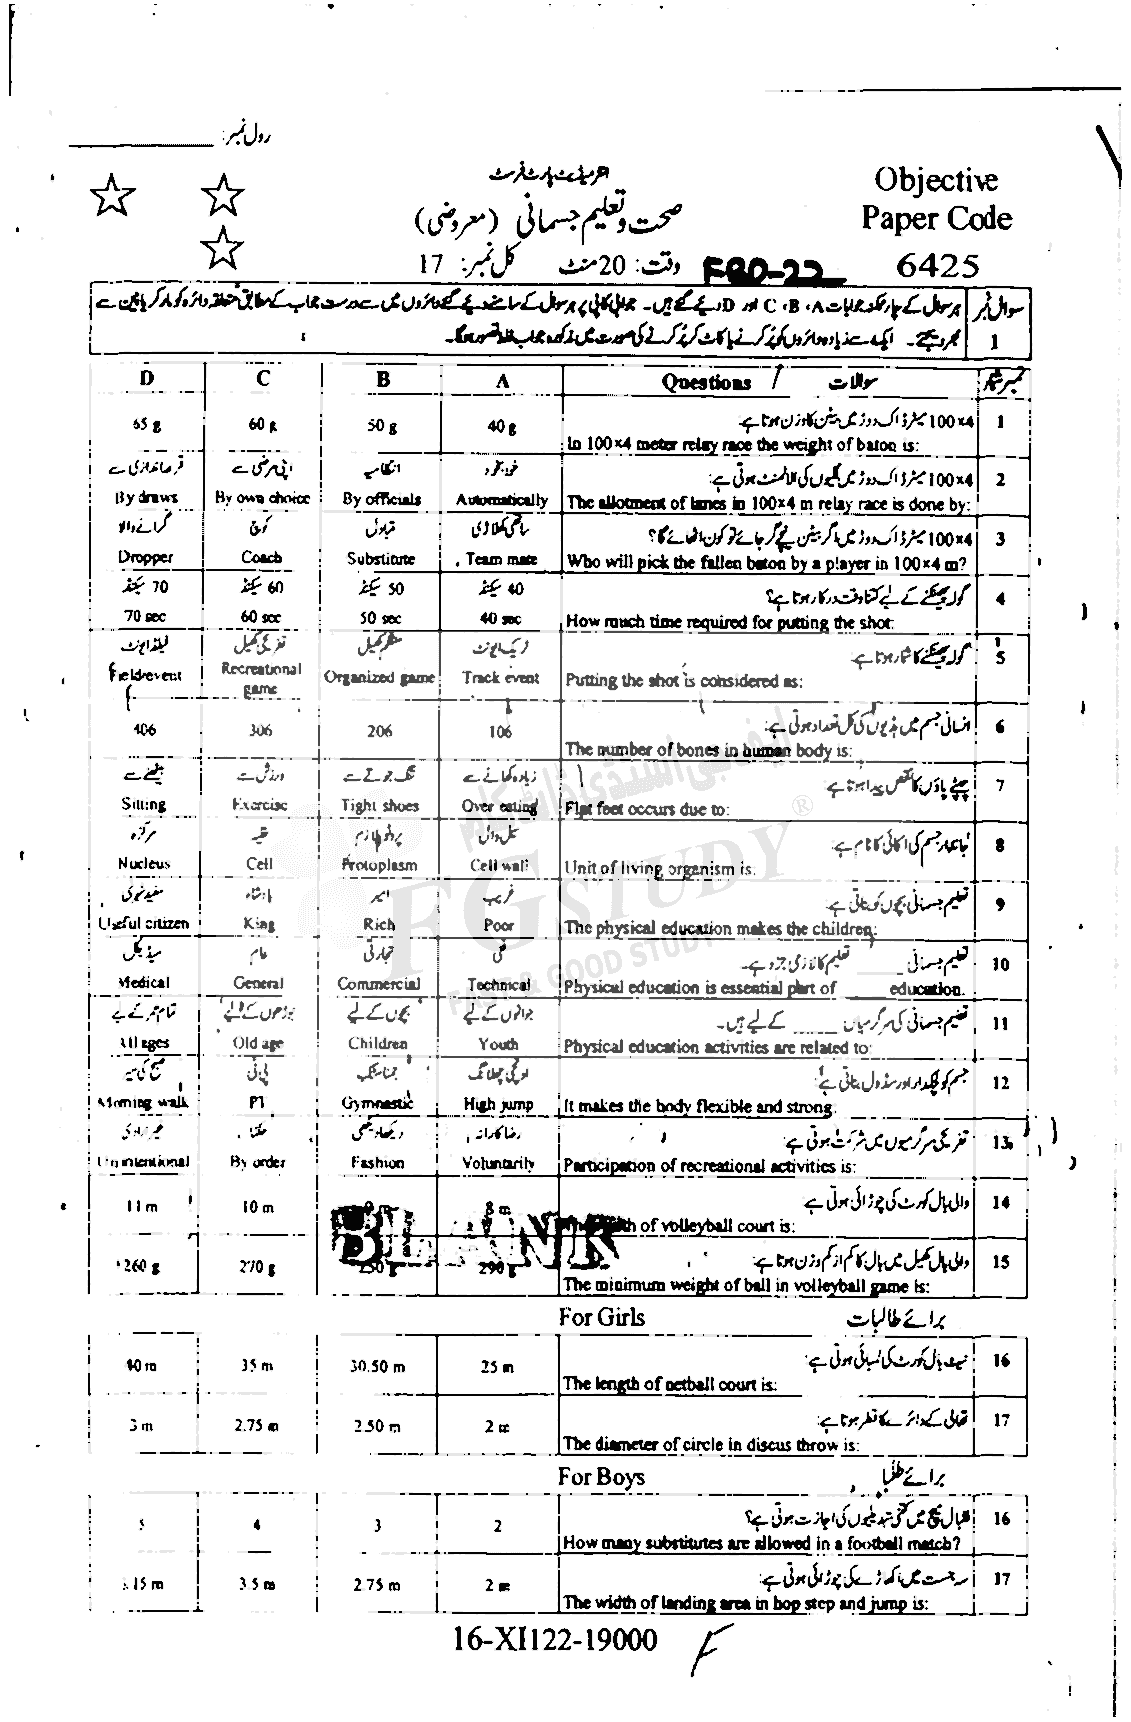 رول نمبر:
انٹرمیڈیٹ پارٹ فرسٹ
Objective
Paper Code
6425
صحت و تعلیم جسمانی (معروضی)
وقت: 20 منٹ
کل نمبر: 17
FBD-22
سوال نمبر 1
ہر سوال کے چار ممکنہ جوابات A، B، C اور D دیئے گئے ہیں۔ جوابی کاپی پر ہر سوال کے سامنے دیئے گئے دائروں میں سے درست جواب کے مطابق متعلقہ دائرہ کو مارکر یا پین سے
بھر دیجئے۔ ایک سے زیادہ دائروں کو پُر کرنے یا کاٹ کر پُر کرنے کی صورت میں مذکورہ جواب غلط تصور ہوگا۔
D C B A Questions / سوالات نمبر شمار
100×4 میٹر ڈاک دوڑ میں بیٹن کا وزن ہوتا ہے: 1
65 g 60 g 50 g 40 g In 100×4 meter relay race the weight of baton is:
قرعہ اندازی سے اپنی مرضی سے انتظامیہ خود بخود 100×4 میٹر ڈاک دوڑ میں گلیوں کی الاٹمنٹ ہوتی ہے: 2
By draws By own choice By officials Automatically The allotment of lanes in 100×4 m relay race is done by:
گرانے والا کوچ متبادل ساتھی کھلاڑی 100×4 میٹر ڈاک دوڑ میں اگر بیٹن نیچے گر جائے تو کون اٹھائے گا؟ 3
Dropper Coach Substitute Team mate Who will pick the fallen baton by a player in 100×4 m?
70 سیکنڈ 60 سیکنڈ 50 سیکنڈ 40 سیکنڈ گولہ پھینکنے کے لیے کتنا وقت درکار ہوتا ہے؟ 4
70 sec 60 sec 50 sec 40 sec How much time required for putting the shot:
فیلڈ ایونٹ تفریحی کھیل منظم کھیل ٹریک ایونٹ گولہ پھینکنے کا شمار ہوتا ہے: 5
Field event Recreational game Organized game Track event Putting the shot is considered as:
انسانی جسم میں ہڈیوں کی کل تعداد ہوتی ہے: 6
406 306 206 106 The number of bones in human body is:
بیٹھنے سے ورزش سے تنگ جوتے سے زیادہ کھانے سے چپٹے پاؤں کا نقص پیدا ہوتا ہے: 7
Sitting Exercise Tight shoes Over eating Flat feet occurs due to:
مرکزہ خلیہ پروٹوپلازم سیل وال جاندار جسم کی اکائی کا نام ہے: 8
Nucleus Cell Protoplasm Cell wall Unit of living organism is:
مفید شہری بادشاہ امیر غریب تعلیم جسمانی بچوں کو بناتی ہے: 9
Useful citizen King Rich Poor The physical education makes the children:
میڈیکل عام تجارتی فنی تعلیم جسمانی ____ تعلیم کا لازمی جزو ہے۔ 10
Medical General Commercial Technical Physical education is essential part of ____ education.
تمام عمر کے لیے بوڑھوں کے لیے بچوں کے لیے جوانوں کے لیے تعلیم جسمانی کی سرگرمیاں ____ کے لیے ہیں۔ 11
All ages Old age Children Youth Physical education activities are related to:
صبح کی سیر پی ٹی جمناسٹک اونچی چھلانگ جسم کو لچکدار اور سڈول بناتی ہے: 12
Morning walk PT Gymnastic High jump It makes the body flexible and strong:
غیر ارادی حکماً دیکھا دیکھی رضاکارانہ تفریحی سرگرمیوں میں شرکت ہوتی ہے: 13
Unintentional By order Fashion Voluntarily Participation of recreational activities is:
والی بال کورٹ کی چوڑائی ہوتی ہے: 14
11 m 10 m 9 m 8 m of volleyball court is:
BLANK
والی بال کھیل میں بال کا کم از کم وزن ہوتا ہے: 15
260 g 270 g 250 g 290 g The minimum weight of ball in volleyball game is:
For Girls برائے طالبات
نیٹ بال کورٹ کی لمبائی ہوتی ہے: 16
40 m 35 m 30.50 m 25 m The length of netball court is:
تھالی کے دائرے کا قطر ہوتا ہے: 17
3 m 2.75 m 2.50 m 2 m The diameter of circle in discus throw is:
For Boys برائے طلبا
فٹبال میچ میں کتنی تبدیلیوں کی اجازت ہوتی ہے؟ 16
5 4 3 2 How many substitutes are allowed in a football match?
سہ جست میں اکھاڑے کی چوڑائی ہوتی ہے: 17
3.5 m 2.75 m 2 m The width of landing area in hop step and jump is:
16-XI122-19000
F
ایف جی اسٹڈی ڈاٹ کام
FG STUDY ®
FAST & GOOD STUDY